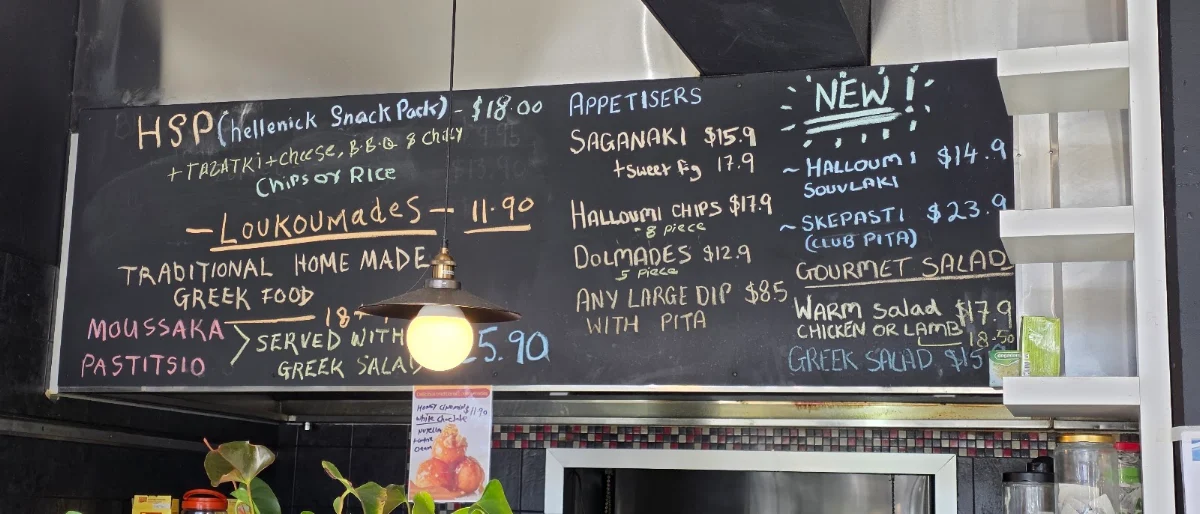 HSP (hellenick Snack Pack) - $18.00
+ TAZATKi + cheese, B.B.Q & Chilly
Chips or Rice
- LOUKOUMADES - 11.90
TRADITIONAL HOME MADE
GREEK FOOD
MOUSSAKA
PASTITSIO
SERVED WITH
GREEK SALAD
5.90
APPETISERS
SAGANAKI $15.9
+ Sweet Fig 17.9
HALLOUMI CHIPS $17.9
- 8 piece
DOLMADES $12.9
5 piece
ANY LARGE DIP $8.5
WITH PITA
NEW!
~ HALLOUMI $14.9
SOUVLAKI
~ SKEPASTI $23.9
(CLUB PITA)
GOURMET SALAD
WARM Salad $17.9
CHICKEN OR LAMB 18-50
GREEK SALAD $15
$11.90
white choclate
NUTELLA